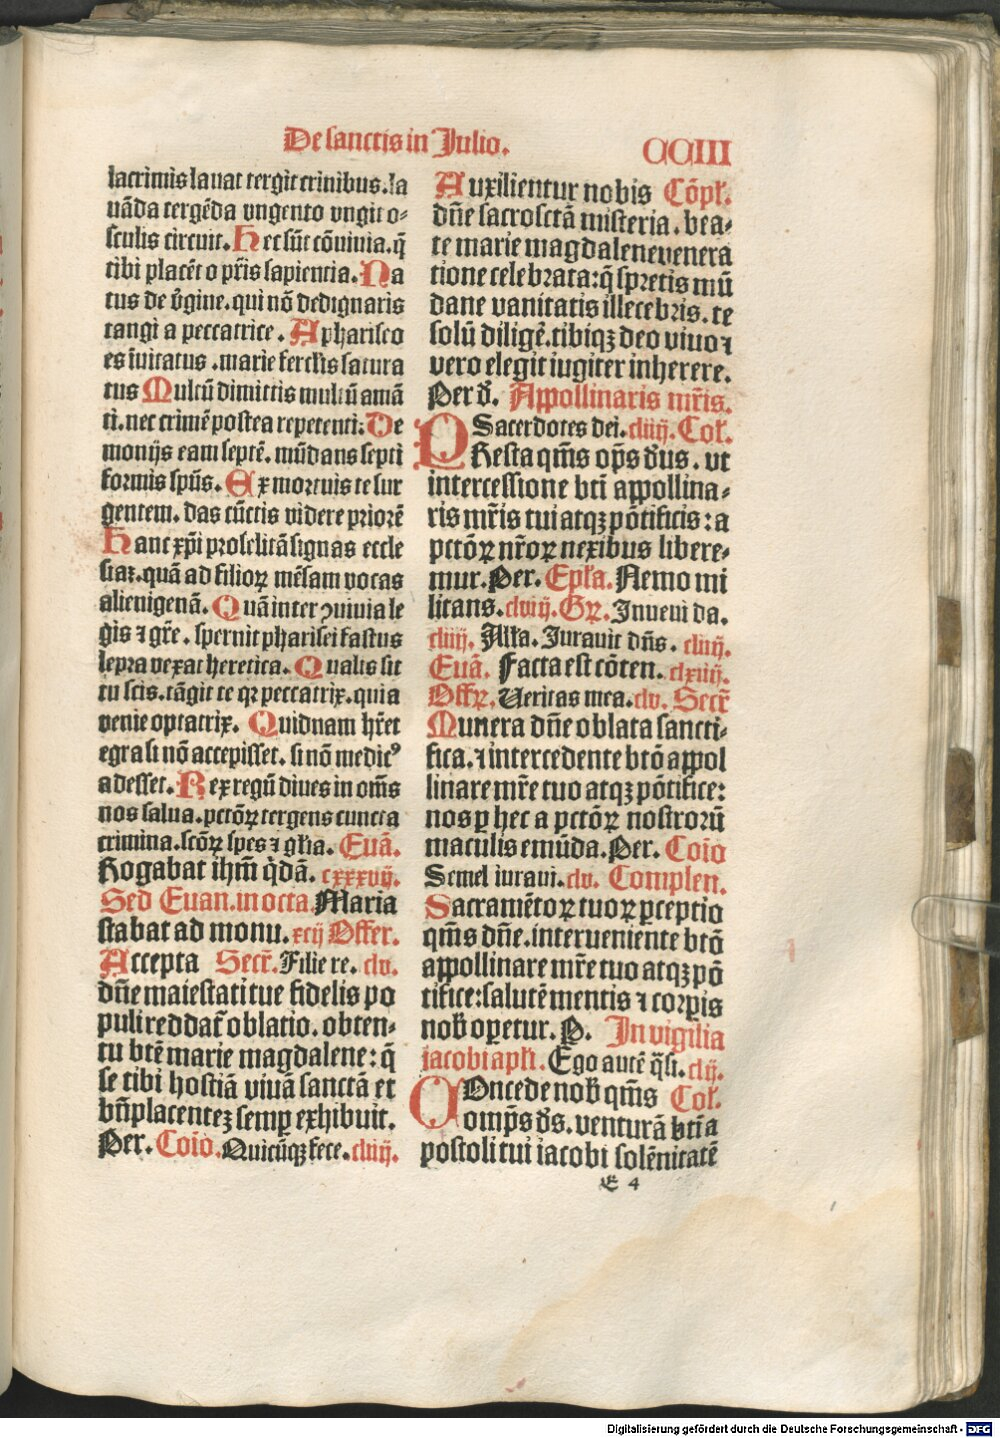 De sanctis in Julio.
CCIII
lacrimis lauat tergit crinibus. la
uãda tergẽda vngento vngit o⸗
sculis circuit. Hec sũt cõuiuia. q̃
tibi placẽt o pr̃is sapientia. Na
tus de v̉gine. qui nõ dedignaris
tangi a peccatrice. A phariseo
es ĩuitatus. marie ferclis satura
tus Multũ dimittis multũ amã
ti. nec crimẽ postea repetenti: De
monijs eam septẽ. mũdans septi
formis spũs. Ex mortuis te sur
gentem. das cũctis videre priorẽ
Hanc xp̃i proselitã signas eccle
siaz. quã ad filioꝝ mẽsam vocas
alienigenã. Quã inter ꝯuiuia le
gis ⁊ gr̃e. spernit pharisei fastus
lepra vexat heretica. Qualis sit
tu scis. tãgit te qꝛ peccatrix. quia
venie optatrix. Quidnam hr̃et
egra si nõ accepisset. si nõ medicꝰ
adesset. Rex regũ diues in oms̃
nos salua. pctõꝝ tergens cuncta
crimina. scõꝝ spes ⁊ gl̃ia. Euã.
Rogabat ihm̃ q̇dã. cxxxvij.
Sed Euan. in octa. Maria
stabat ad monu. xcij Offer.
Accepta Secr̃. Filie re. clv.
dñe maiestati tue fidelis po
puli reddat̃ oblatio. obten⸗
tu btẽ marie magdalene: q̃
se tibi hostiã viuã sanctã et
bñplacentez semꝑ exhibuit.
Per. Coĩo. Quicũqꝫ fece. cliiij.
Auxilientur nobis Cõpl̃.
dñe sacrosctã misteria. bea⸗
te marie magdalene venera
tione celebrata: q̃ spretis mũ
dane vanitatis illecebris. te
solũ diligẽ. tibiqꝫ deo viuo ⁊
vero elegit iugiter inherere.
Per d̃. Appollinaris mr̃is.
Sacerdotes dei. cliiij. Col̃.
PResta qm̃s op̃s d̃us. vt
intercessione bti appollina⸗
ris mr̃is tui atqꝫ põtificis: a
pctõꝝ nr̃oꝝ nexibus libere⸗
mur. Per. Epl̃a. Nemo mi
litans. clviij. Gꝝ. Inueni da.
cliiij. Al̃la. Jurauit dñs. cliiij.
Euã. Facta est cõten. clxiij.
Offꝝ. Ueritas mea. clv. Secr̃
Munera dñe oblata sancti⸗
fica. ⁊ intercedente btõ appol
linare mr̃e tuo atqꝫ põtifice:
nos ꝑ hec a pctõꝝ nostrorũ
maculis emũda. Per. Coĩo
Semel iuraui. clv. Complen.
Sacramẽtoꝝ tuoꝝ ꝑceptio
qm̃s dñe. interueniente btõ
appollinare mr̃e tuo atqꝫ põ
tifice: salutẽ mentis ⁊ corꝑis
nob̃ oꝑetur. P. In vigilia
iacobi apl̃i. Ego autẽ q̃si. clij.
COncede nob̃ qm̃s Col̃.
omp̃s d̃s. venturã bti a
postoli tui iacobi solẽnitatẽ
E 4
Digitalisierung gefördert durch die Deutsche Forschungsgemeinschaft - DFG